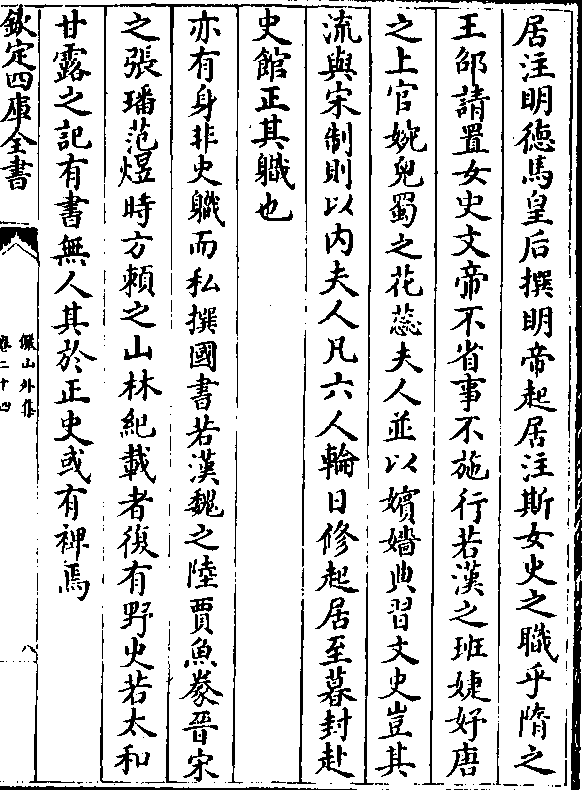 居注明德馬皇后撰明帝起居注斯女史之職乎隋之
王邵請置女史文帝不省事不施行若漢之班婕妤唐
之上官婉兒蜀之花蕊夫人並以嬪嬙典習文史豈其
流與宋制則以内夫人凡六人輪日修起居至暮封赴
史館正其軄也
亦有身非史軄而私撰國書若漢魏之陸賈魚豢晉宋
之張璠范煜時方頼之山林紀載者復有野史若太和
甘露之記有書無人其於正史或有裨焉
欽定四庫全書
儼山外集
卷二十四
八